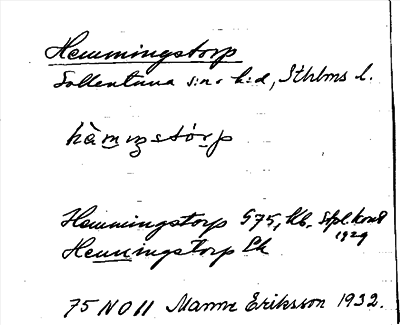 Hemmingstorp
Sollentuna s:n o h:d, Sthlms l.
hàmıŋstórp
Hemmingstorp G75, Kb. Spl. kont 1929
Henningstorp Ek
75 NO 11 Manne Eriksson 1932.